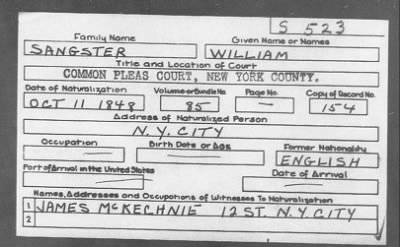 S 523
Family Name Given Name or Names
SANGSTER WILLIAM
Title and Location of Court
COMMON PLEAS COURT, NEW YORK COUNTY.
Date of Naturalization Volume or Bundle No. Page No. Copy of Record No.
OCT 11 1848 85 — 154
Address of Naturalized Person
N.Y. CITY
Occupation Birth Date or Age Former Nationality
— — ENGLISH
Port of Arrival in the United States Date of Arrival
— —
Names, Addresses and Occupations of Witnesses To Naturalization
1 JAMES McKECHNIE 12 ST. N.Y. CITY
2